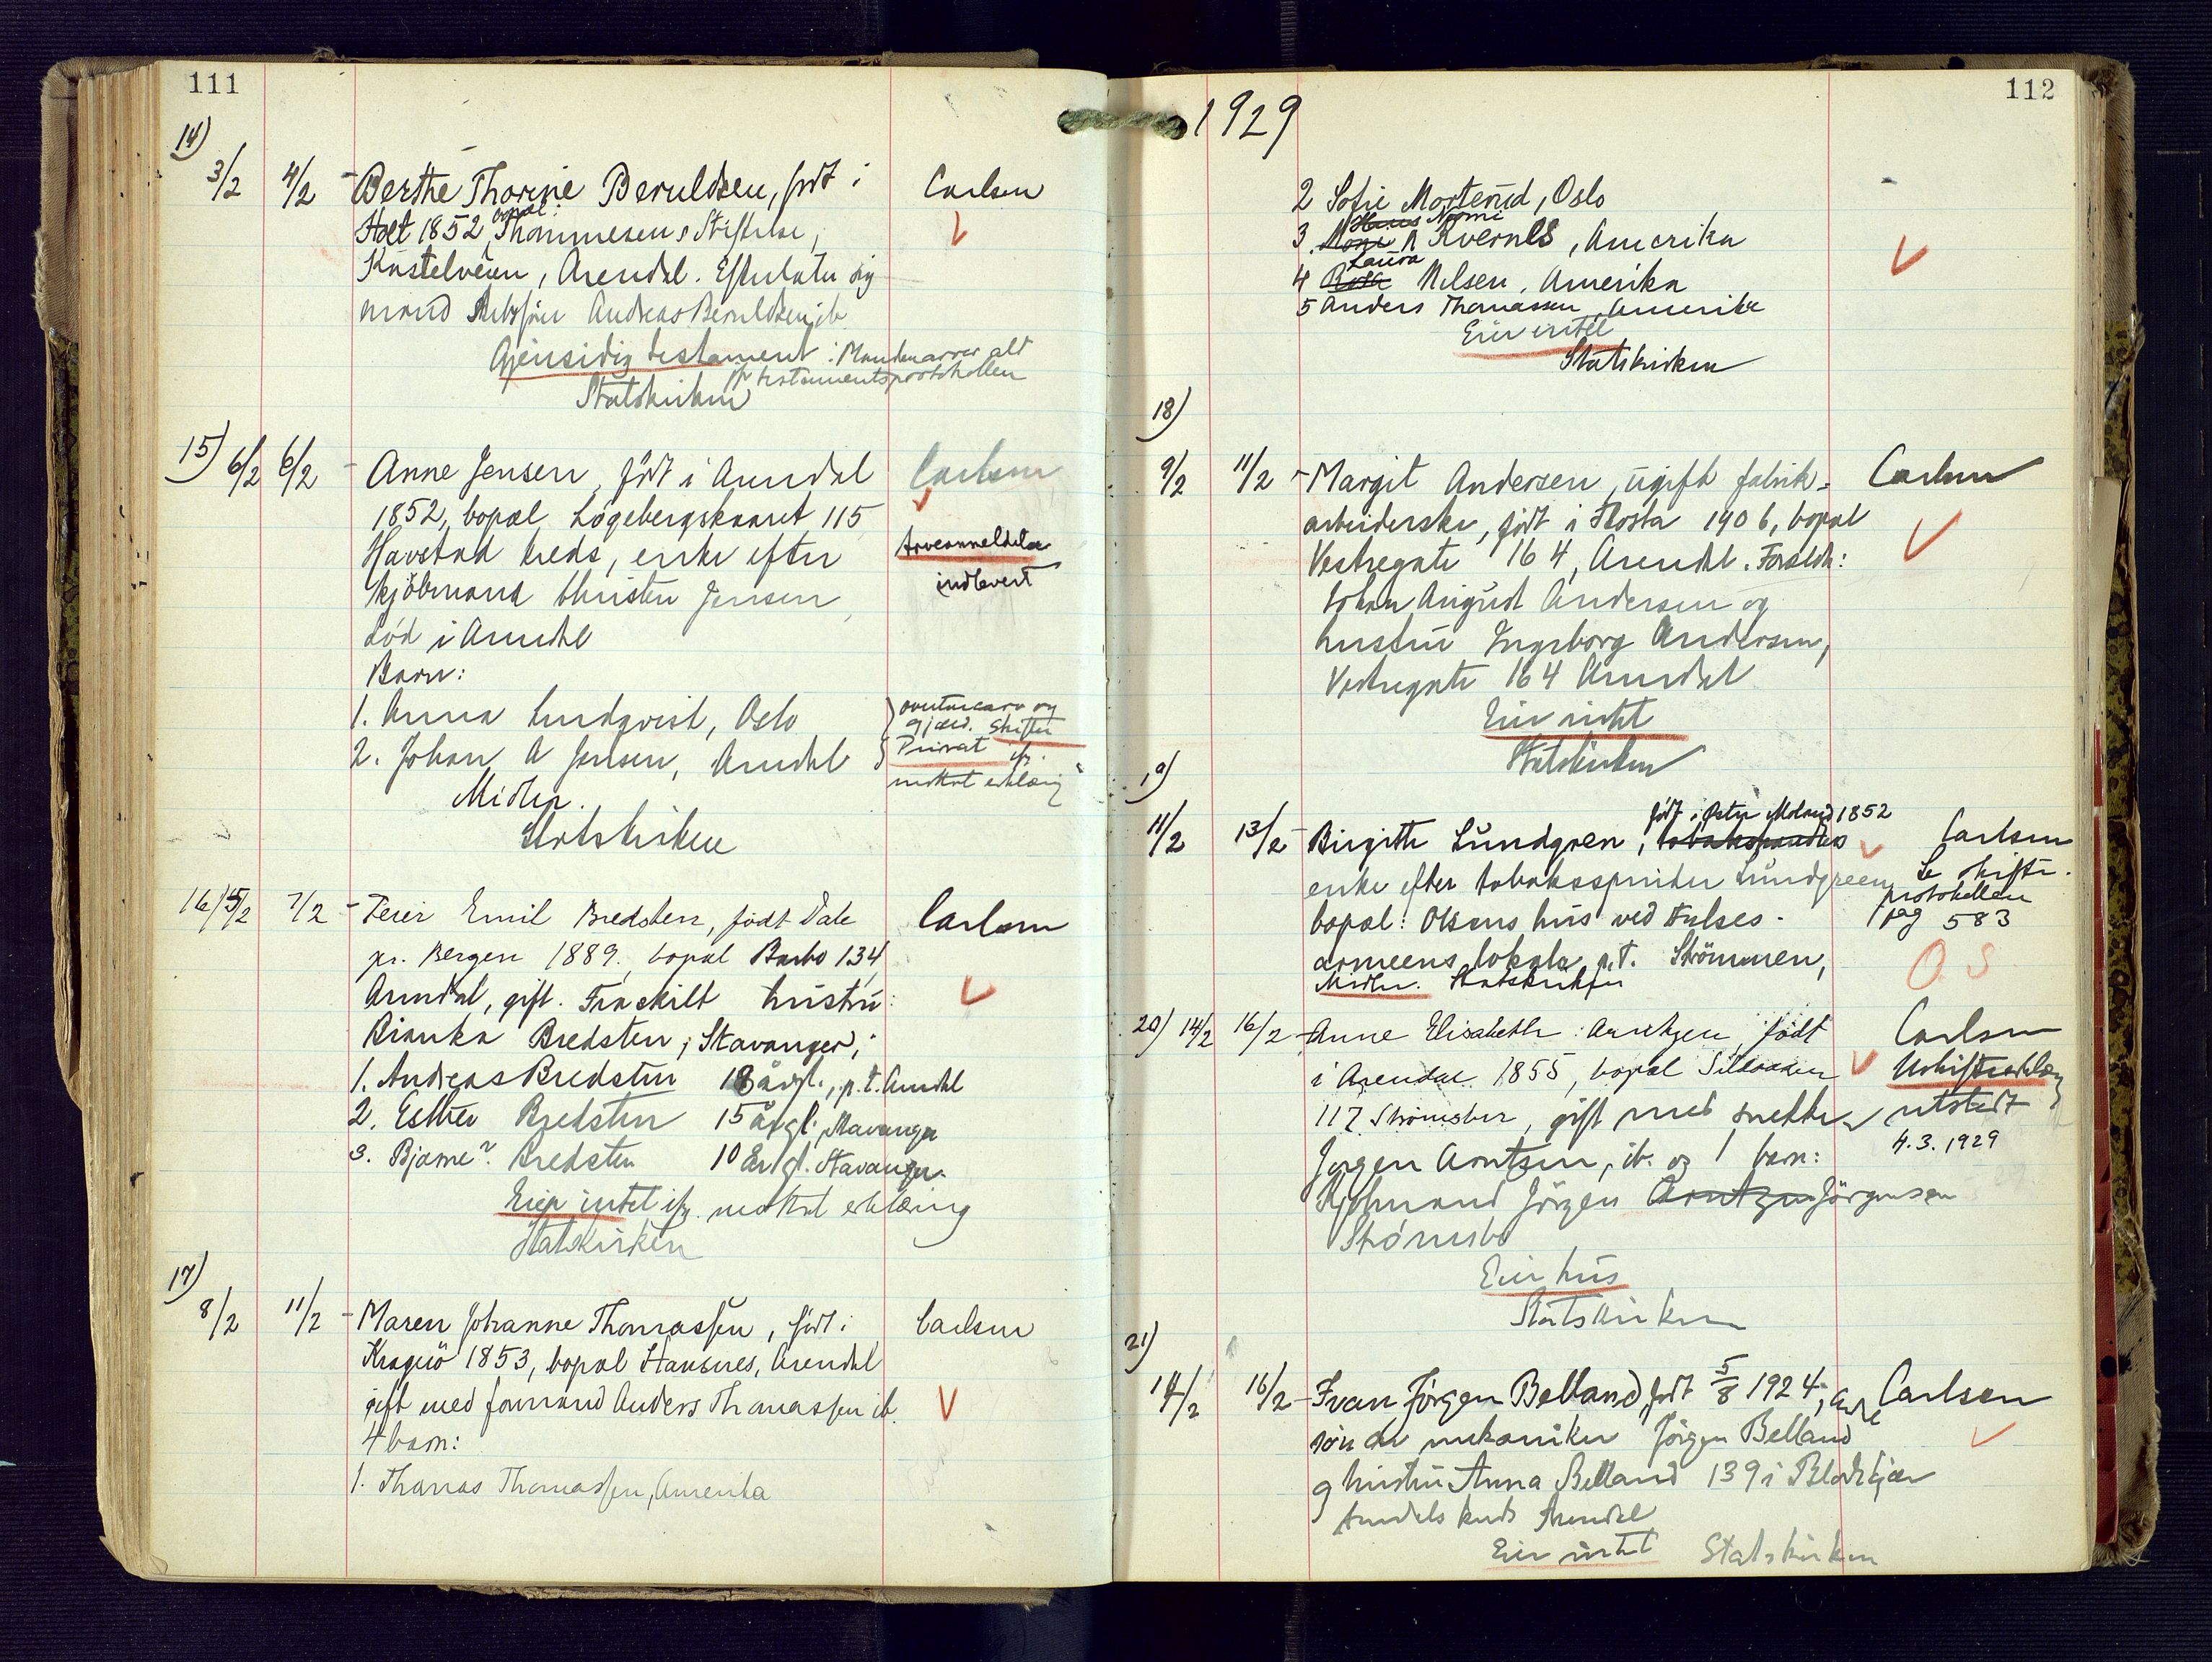 111
14)
3/2 4/2 - Berthe Thorine Beruldsen, født i Carlsen
Holt 1852, bopæl: Thommesens Stiftelse,
Kastelveien, Arendal. Efterlater sig
mand Andreas Beruldsen, ib.
Gjensidig testament: Manden arver alt
jfr testamentsprotokollen
Statskirken
15) 6/2 6/2 - Anne Jensen, født i Arendal Carlsen
1852, bopæl Løgebergskaaret 115
Havstad kreds, enke efter arveanmeldelse
kjøbmand Christen Jensen, indlevert
død i Arendal
Barn:
1. Anna Lundqvist, Oslo
2. Johan A Jensen, Arendal
overtar arv og
gjæld. Skifter
Privat jfr.
mottat erklæring
Midler.
Statskirken
16) 5/2 7/2 - Peier Emil Bredsten, født Dale Carlsen
pr. Bergen 1889., bopæl Barbo 134,
Arendal, gift. Fraskilt hustru:
Bianka Bredsten, Stavanger,
1. Andreas Bredsten 18 årgl., p.t. Arendal
2. Esther Bredsten 15 årgl. Stavanger
3. Bjarne? Bredsten 10 årgl. Stavanger
Eier intet jfr. mottat erklæring
Statskirken
17)
8/2 11/2 - Maren Johanne Thomassen, født i Carlsen
Kragerø 1853, bopæl Stausnes, Arendal
gift med formand Anders Thomassen ib.
4 barn:
1. Thomas Thomassen, Amerika
1929
112
2 Sofie Mortenud, Oslo
3. Naomi Kvernes, Amerika
4 Laura Nilsen, Amerika
5 Anders Thomassen, Amerika
Eier intet
Statskirken
18)
9/2 11/2 - Margit Andersen, ugift fabrik- Carlsen
arbeiderske, født i Flosta 1906, bopæl
Vestregate 164, Arendal. Foreldre:
Johan August Andersen og
hustru Ingeborg Andersen,
Vestregate 164 Arendal
Eier intet
Statskirken
19)
født i Østre Moland 1852
11/2 13/2 - Birgitte Lundgren, tobakspinders Carlsen
enke efter tobaksspinder Lundgreen, Se skifte-
protokollen
bopæl: Olsens hus ved Frelses- pag 583
armeens lokale p.t. Strømmen, OS
Midler. Statskirken
20) 14/2 16/2 - Anne Elisabeth Arntzen, født Carlsen
i Arendal 1855, bopæl Uskifteerklæring
117 Strømsbu, gift med snekker utstedt
4.3.1929
Jørgen Arntzen, ib. og 1 barn:
Kjøbmand Jörgen Arntzen Jörgensen
Strømsbo
Eier hus
Statskirken
21)
14/2 16/2 - Ivan Jørgen Belland, født 5/8 1924, Carlsen
søn av mekaniker Jörgen Belland
og hustru Anna Belland 139 i Blødekjær
Arendals kreds Arendal
Eier intet Statskirken